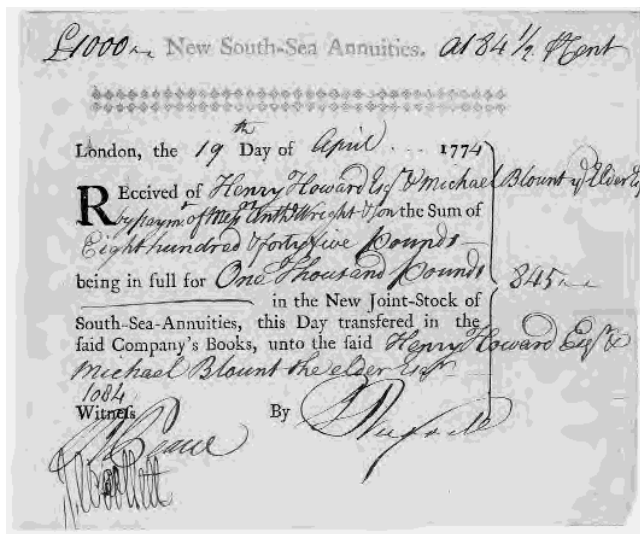 £1000 New South-Sea Annuities. at 84 1/2 ⅌ Cent
London, the 19th Day of April 1774
REceived of Henry Howard Esqr & Michael Blount ye Elder Esq
by paymt of Messrs Anthy Wright & Son the Sum of
Eight hundred & forty five Pounds
being in full for One Thousand Pounds 845
in the New Joint-Stock of
South-Sea-Annuities, this Day transfered in the
said Company's Books, unto the said Henry Howard Esqr &
Michael Blount the elder Esqr
1084
Witness By